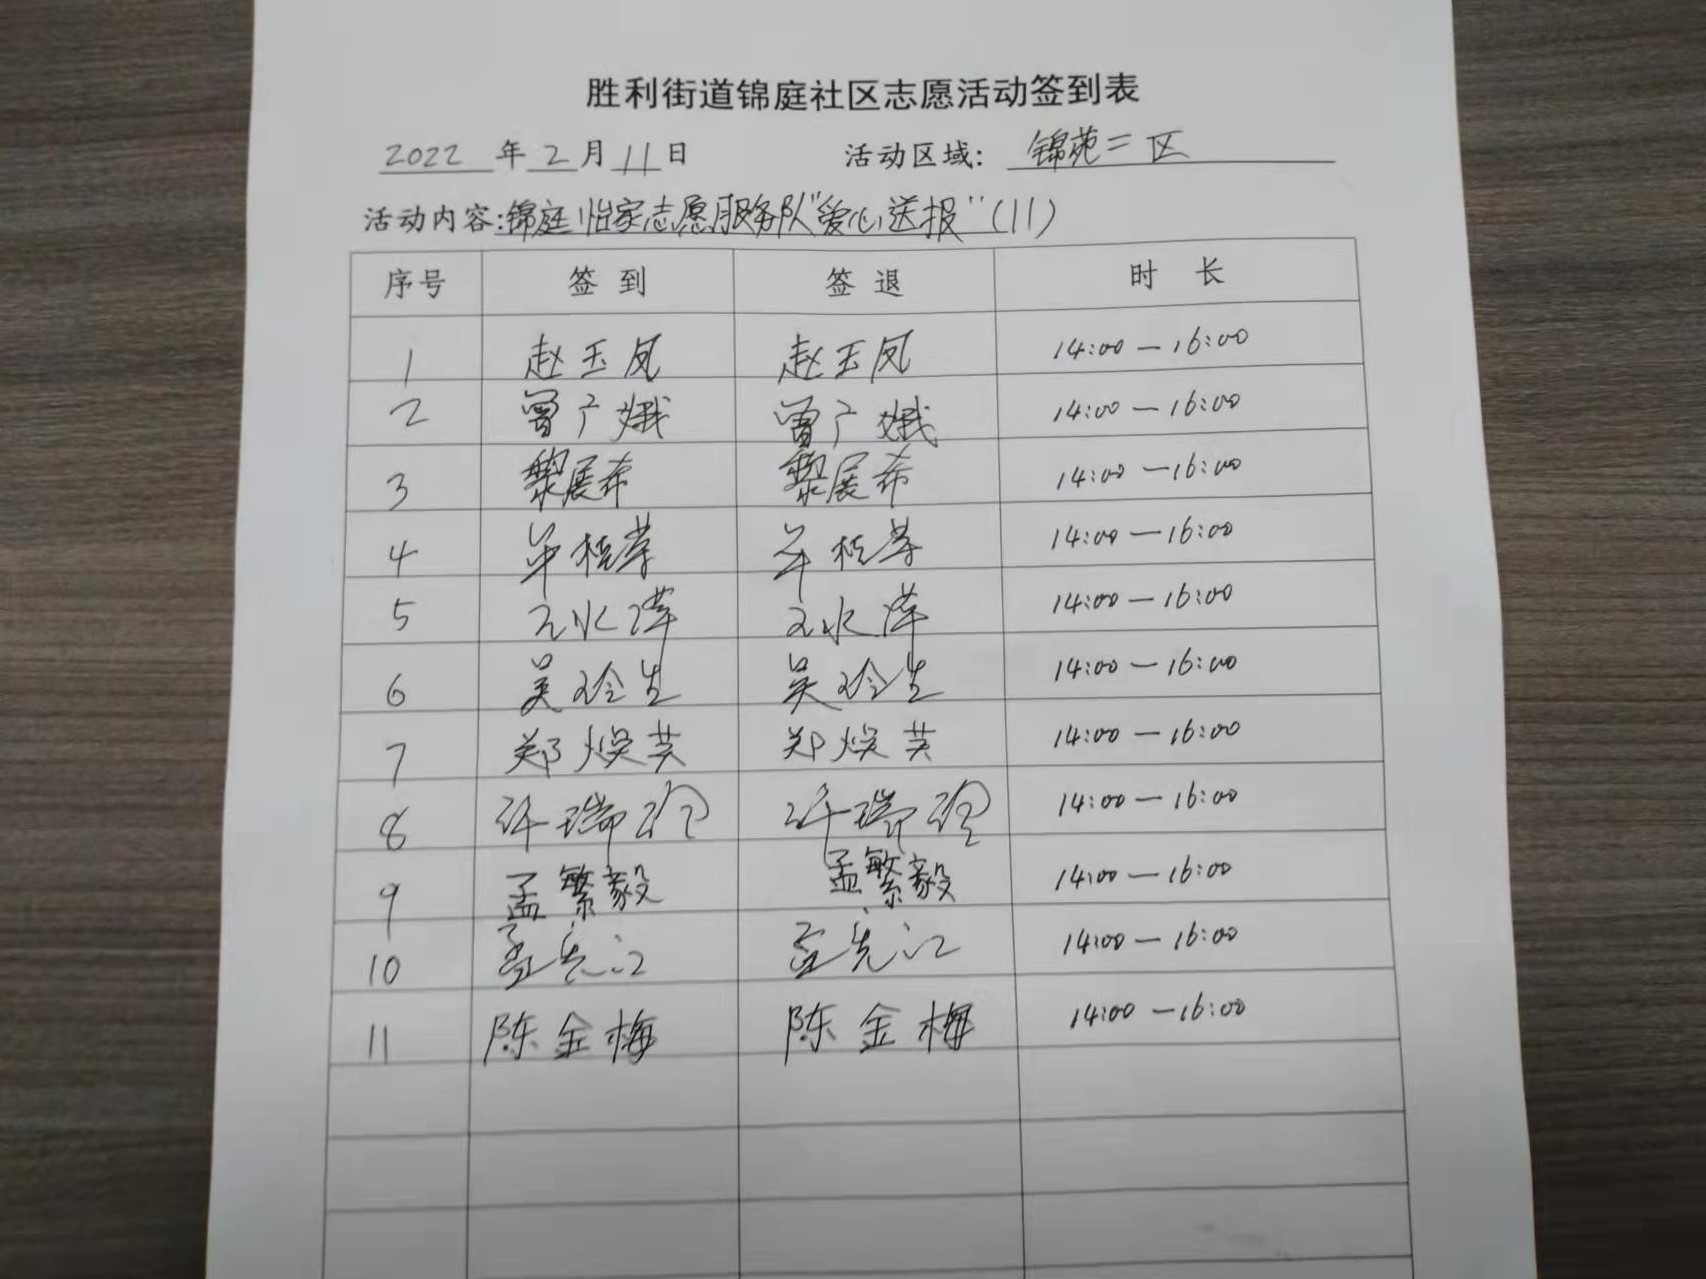 胜利街道锦庭社区志愿活动签到表
2022 年 2 月 11 日 活动区域: 锦苑二区
活动内容:锦庭怡家志愿服务队"爱心送报"(11)
序号 签到 签退 时 长
1 赵玉凤 赵玉凤 14:00—16:00
2 曾广娥 曾广娥 14:00—16:00
3 黎展布 黎展布 14:00—16:00
4 单桂荣 单桂荣 14:00—16:00
5 14:00—16:00
6 吴玲生 吴玲生 14:00—16:00
7 郑焕英 郑焕英 14:00—16:00
8 许瑞玲 许瑞玲 14:00—16:00
9 孟繁毅 孟繁毅 14:00—16:00
10 孟先江 孟先江 14:00—16:00
11 陈金梅 陈金梅 14:00—16:00